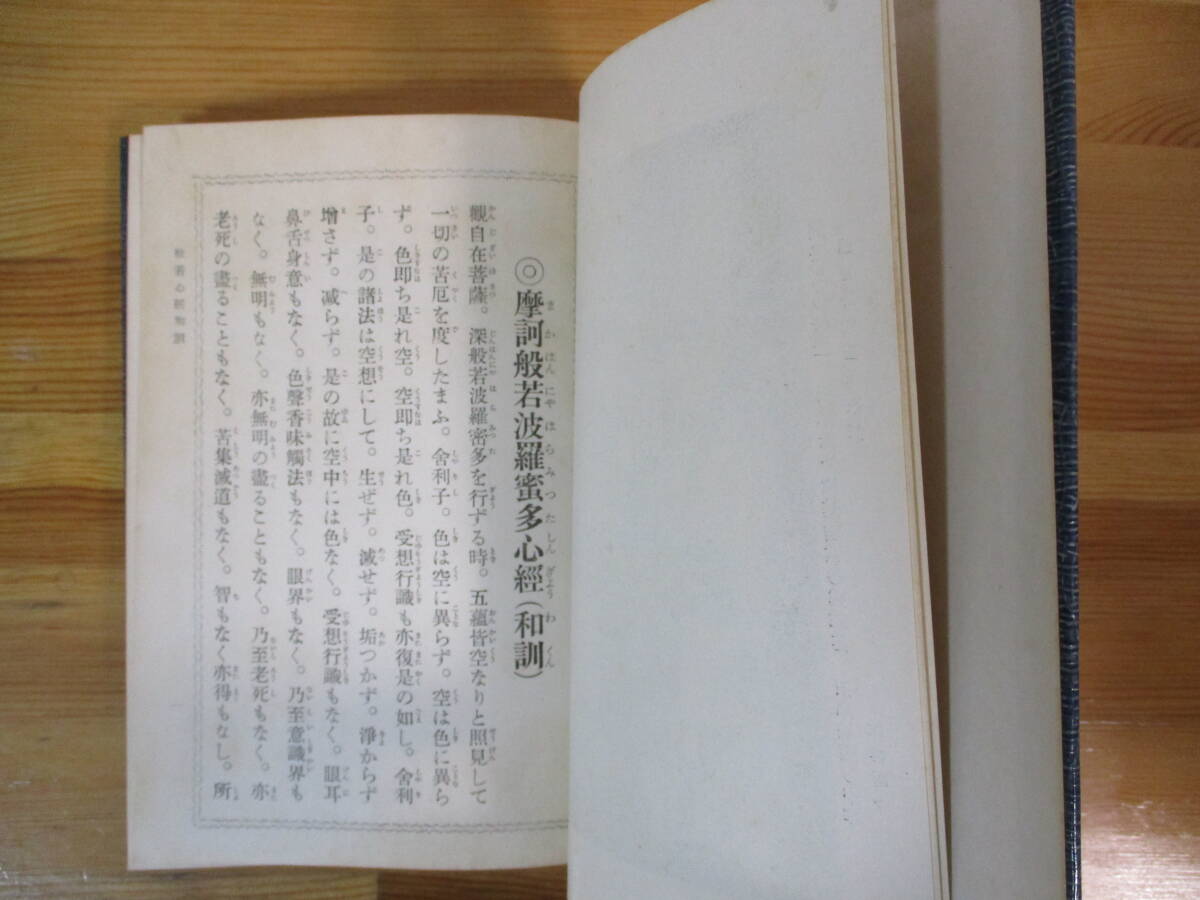 ◎摩訶般若波羅蜜多心經(和訓)
觀自在菩薩。深般若波羅密多を行ずる時。五蘊皆空なりと照見して
一切の苦厄を度したまふ。舍利子。色は空に異らず。空は色に異ら
ず。色即ち是れ空。空即ち是れ色。受想行識も亦復是の如し。舍利
子。是の諸法は空想にして。生ぜず。滅せず。垢つかず。淨からず
增さず。減らず。是の故に空中には色なく。受想行識もなく。眼耳
鼻舌身意もなく。色聲香味觸法もなく。眼界もなく。乃至意識界も
なく。無明もなく。亦無明の盡ることもなく。乃至老死もなく。亦
老死の盡ることもなく。苦集滅道もなく。智もなく亦得もなし。所
般若心經和訓